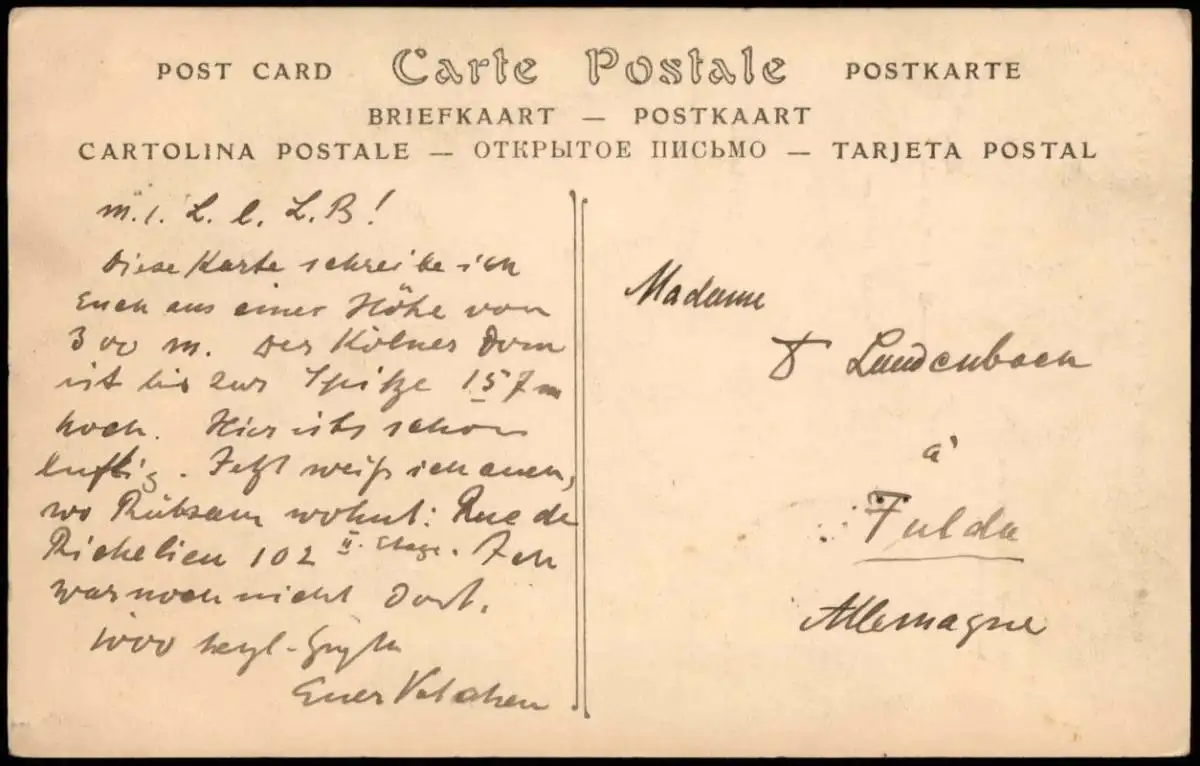 POST CARD Carte Postale POSTKARTE
BRIEFKAART — POSTKAART
CARTOLINA POSTALE — ОТКРЫТОЕ ПИСЬМО — TARJETA POSTAL
m. l. L. l. L. B!
Diese Karte schreibe ich
Euch aus einer Höhe von
300 m. Der Kölner Dom
ist bis zur Spitze 157 m
hoch. Hier ists schon
luftig. Jetzt weiß ich auch,
wo Rübsam wohnt: Rue de
Richelieu 102 II. Etage. Ich
war noch nicht dort.
1000 herzl.
Euer
Madame
Laudenbach
à
Fulda
Allemagne